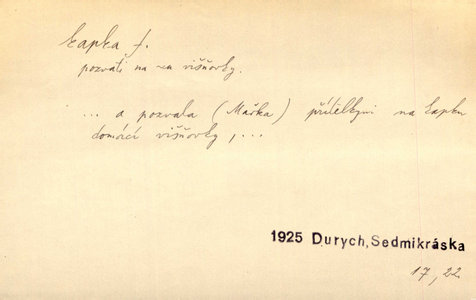 kapka f.
pozvati na -u višňovky.
... a pozvala (Matka) přítelkyni na kapku
domácí višňovky, ...
1925 Durych, Sedmikráska
17, 22